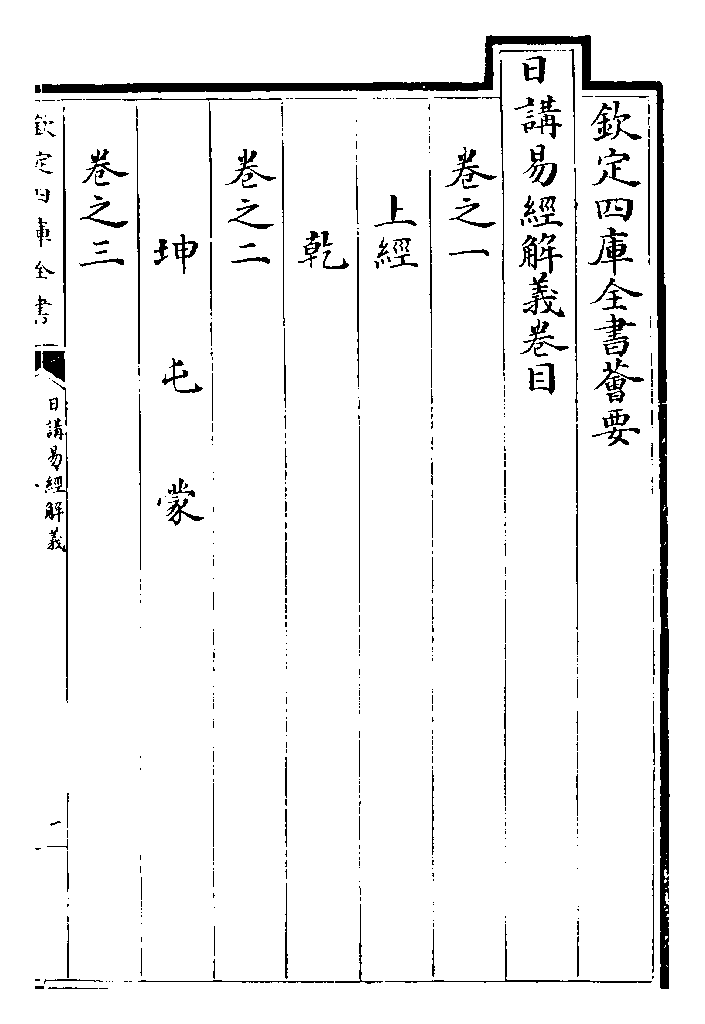 欽定四庫全書薈要
日講易經解義卷目
卷之一
上經
乾
卷之二
坤　屯　蒙
卷之三
欽定四庫全書
日講易經解義
一